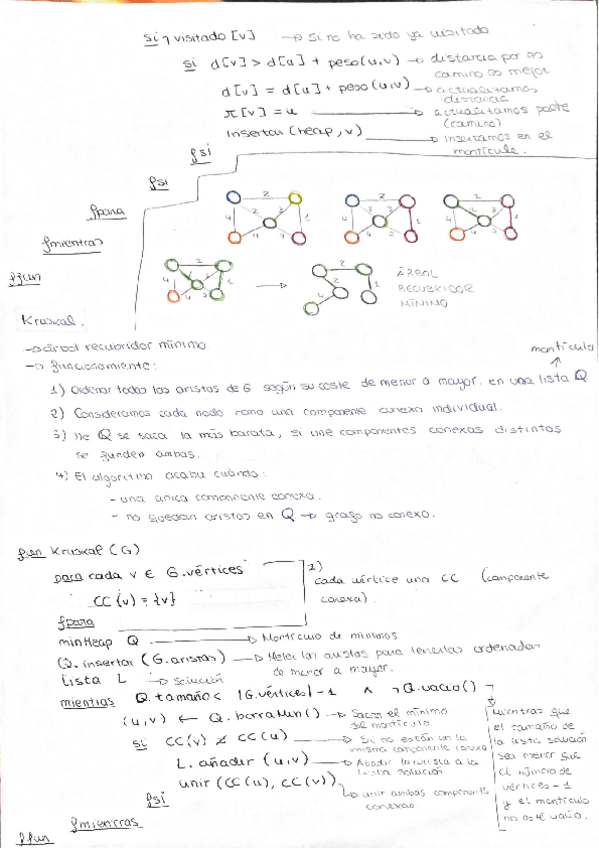 si ¬ visitado [v] → si no ha sido ya visitado
si d[v] > d[u] + peso(u,v) → distancia por
camino es mejor
d[v] = d[u] + peso(u,v) → actualizamos
distancia
π[v] = u → actualizamos padre
(camino)
insertar (heap, v) → insertamos en el
montículo.
fsi
fsi
fpara
fmientras
ffun
2
4
2
1
4
3
2
4
2
1
4
3
2
4
2
1
4
3
2
4
1
4
3
2
4
1
ÁRBOL
RECUBRIDOR
MÍNIMO
Kruskal.
→ árbol recubridor mínimo
→ funcionamiento:
montículo
1) Ordenar todas las aristas de G según su coste de menor a mayor. en una lista Q
2) Consideramos cada nodo como una componente conexa individual.
3) De Q se saca la más barata, si une componentes conexas distintas
se funden ambas.
4) El algoritmo acaba cuándo:
- una única componente conexa.
- no quedan aristas en Q → grafo no conexo.
fun Kruskal (G)
para cada v ∈ G.vértices
CC(v) = {v}
fpara
2)
cada vértice una CC (componente
conexa).
minHeap Q → Montículo de mínimos
Q. insertar (G.aristas) → Metei las aristas para tenerlas ordenadas
de menor a mayor.
Lista L → Solución
mientras Q.tamaño < |G.vértices| - 1 ∧ ¬Q.vacio()
(u,v) ← Q.borraMin() → Sacas el mínimo
del montículo
si CC(v) ≠ CC(u) → Si no están en la
misma componente conexa
L. añadir (u,v) → Añadir la arista a la
lista solución
unir (CC(u), CC(v)) → unir ambas componente
conexas
fsi
fmientras
ffun
Mientras que
el tamaño de
la lista solución
sea menor que
el número de
vértices - 1
y el montículo
no esté vacío.